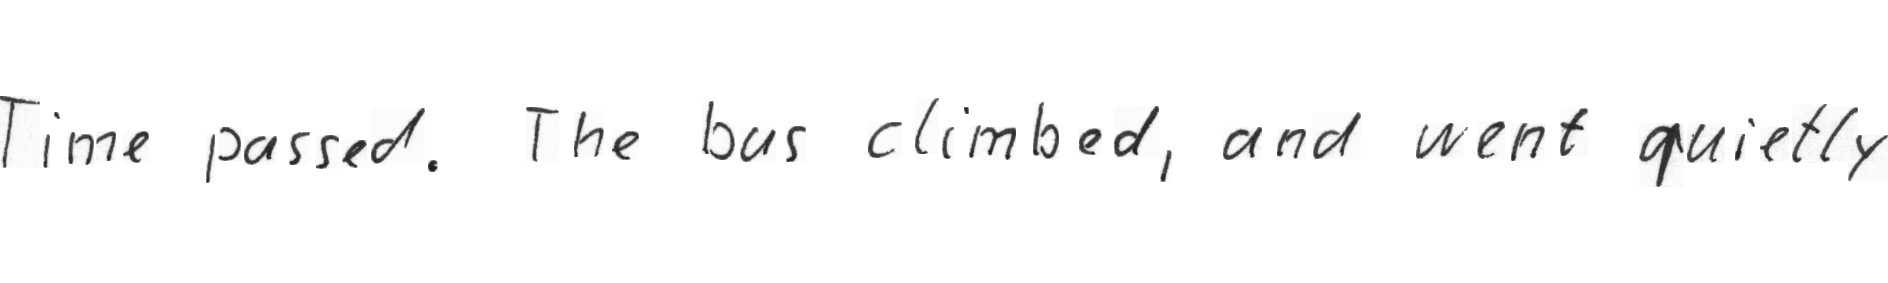 Time passed. The bus climbed, and went quietly